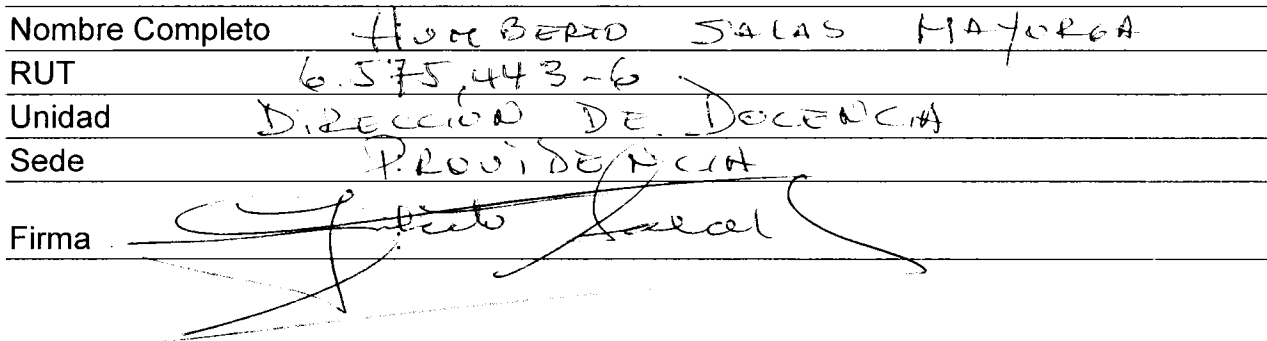 Nombre Completo HUMBERTO SALAS MAYORGA
RUT 6.575,443-6
Unidad DIRECCIÓN DE DOCENCIA
Sede PROVIDENCIA
Firma